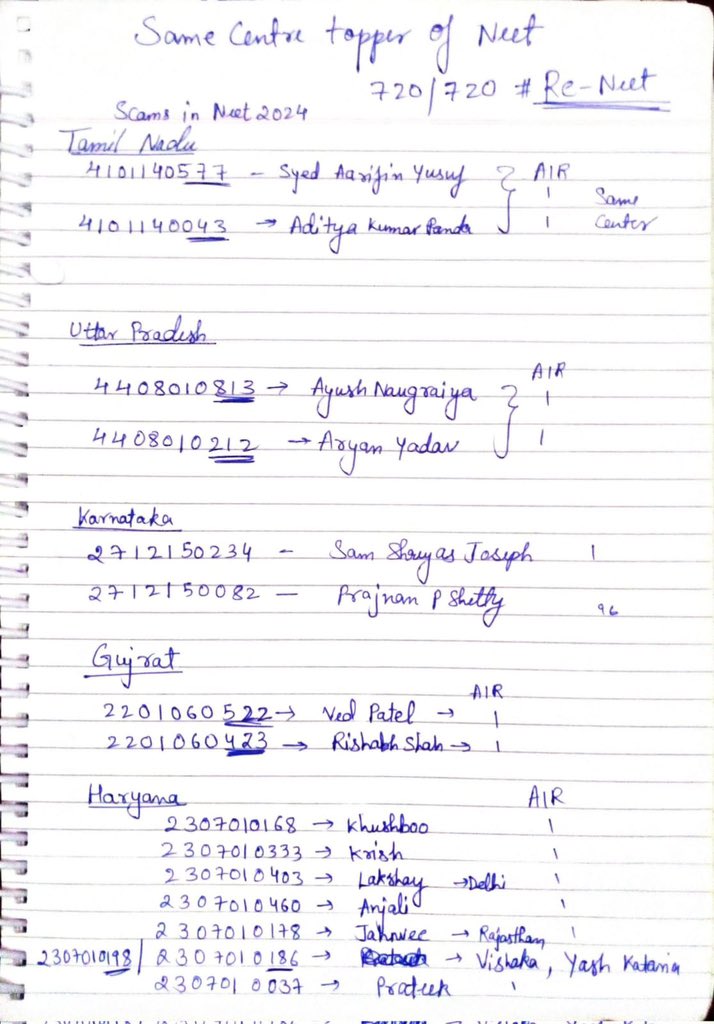 Same Centre topper of Neet
720/720 # Re-Neet
Scams in Neet 2024
Tamil Nadu
4101140577 – Syed Aarifin Yusuf } AIR 1
4101140043 → Aditya Kumar Panda 1 Same Center
Uttar Pradesh
AIR
4408010813 → Ayush Naugraiya } 1
4408010212 → Aryan Yadav 1
Karnataka
2712150234 – Sam Shreyas Joseph 1
2712150082 – Prajnan P Shetty 96
Gujrat
AIR
2201060522 → Ved Patel → 1
2201060423 → Rishabh Shah → 1
Haryana AIR
2307010168 → Khushboo 1
2307010333 → Krish 1
2307010403 → Lakshay → Delhi 1
2307010460 → Anjali 1
2307010178 → Jahnvee → Rajasthan 1
2307010198 / 2307010186 → → Vishaka, Yash Kataria
2307010037 → Prateek 1